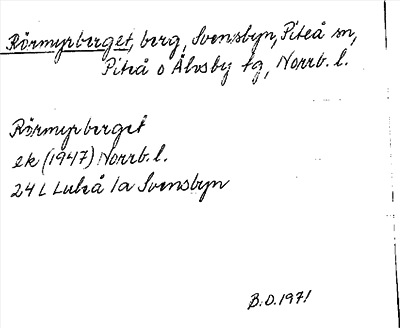 Rörmyrberget, berg, Svensbyn, Piteå sn,
Piteå o Älvsby tg, Norrb. l.
Rörmyrberget
ek (1947) Norrb. l.
24 L Luleå 1a Svensbyn
B.O. 1971